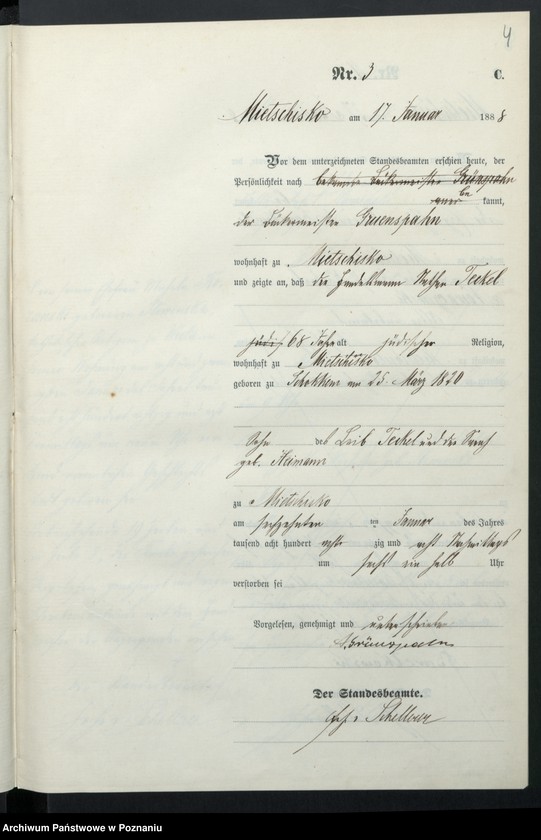 4
Nr. 3 C.
Mietschisko am 17. Januar 1888
Vor dem unterzeichneten Standesbeamten erschien heute, der
Persönlichkeit nach bekannte Bäckermeister Grünspahn
be kannt,
der Bäckermeister Gruenspahn
wohnhaft zu Mietschisko
und zeigte an, daß der Handelsmann Nathan Teckel
68 Jahre alt jüdischer Religion,
wohnhaft zu Mietschisko
geboren zu Schokken am 25. März 1820
Sohn des Leib Teckel und der Sarah
geb. Heimann
zu Mietschisko
am sechzehnten Januar des Jahres
tausend acht hundert acht zig und acht Nachmittags
um sechs ein halb Uhr
verstorben sei
Vorgelesen, genehmigt und unterschrieben
Grünspahn
Der Standesbeamte.
Archiwum Państwowe w Poznaniu